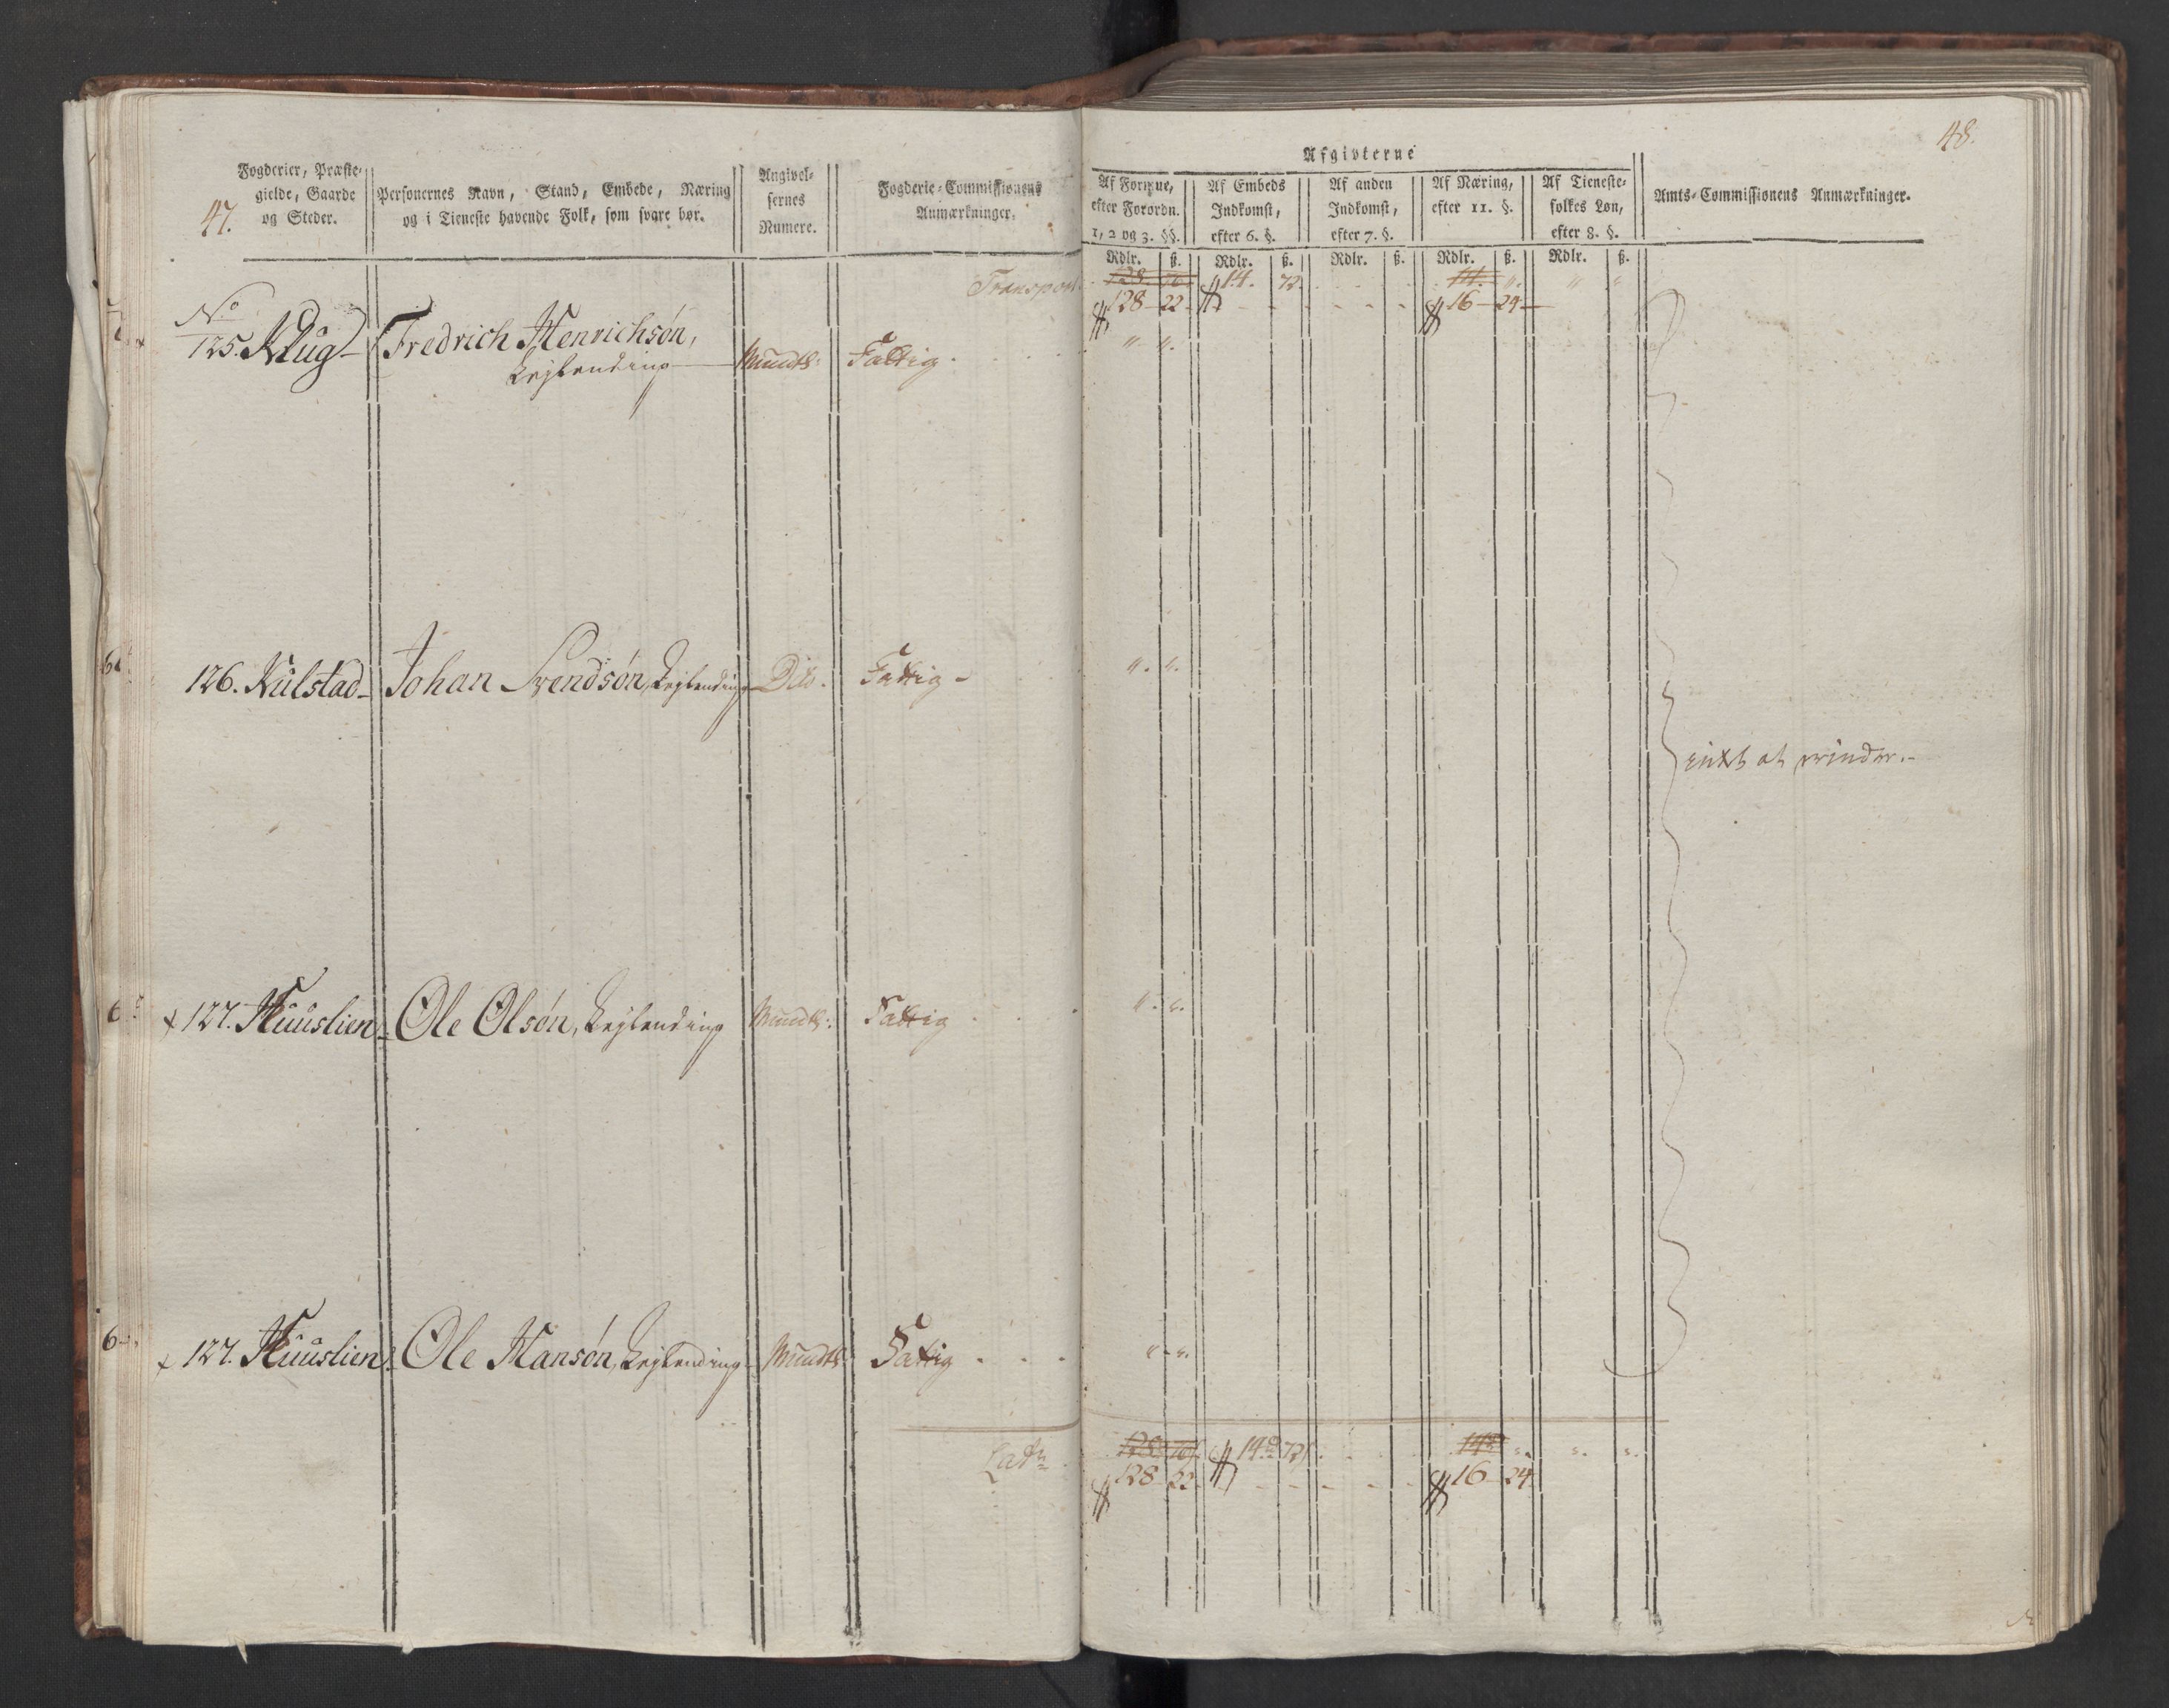 47.
Fogderier, Præste-
gielde, Gaarde
og Steder.
Personernes Navn, Stand, Embede, Næring
og i Tieneste havende Folk, som svare bør.
Angivel-
sernes
Numere.
Fogderie-Commissionens
Anmærkninger.
Transport
No
125. Klug - Fredrich Henrichsøn,
Lejlending - Mundtl: Fattig.
126. Kulstad - Johan Svendsøn, Lejlending Dito. Fattig -
x 127. Huuslien - Ole Olsøn, Lejlending Mundtl: Fattig
x 127. Huuslien. Ole Hansøn, Lejlending - Mundtl: Fattig
Lat.
48.
Afgivterne
Af Formue,
efter Forordn.
1, 2 og 3. §§.
Af Embeds
Indkomst,
efter 6. §.
Af anden
Indkomst,
efter 7. §.
Af Næring,
efter 11. §.
Af Tieneste-
folkes Løn,
efter 8. §.
Amts-Commissionens Anmærkninger.
Rdlr. ß. Rdlr. ß. Rdlr. ß. Rdlr. ß. Rdlr. ß.
128. 76. 14. 72. 14. " " "
128 - 22 - 16 - 24 -
" "
" "
intet at erindre. -
" "
" "
128 14 72 14 " " "
128 22 16 - 24